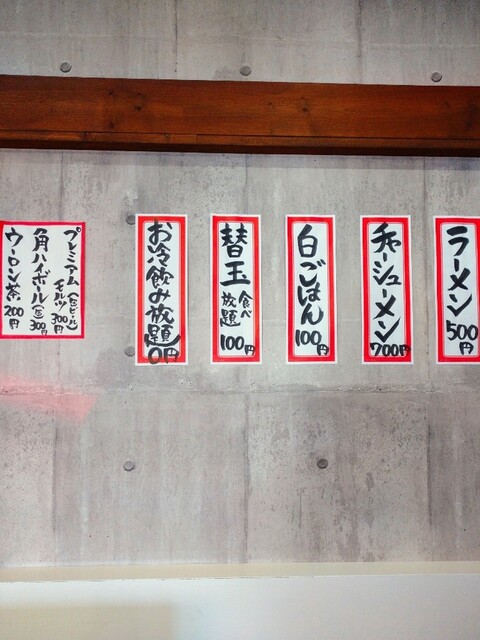 ラーメン
500円
チャーシューメン
700円
白ごはん
100円
替玉
食べ放題
100円
お冷飲み放題
0円
プレミアム(生ビール)
モルツ 300円
角ハイボール(缶)300円
ウーロン茶 200円